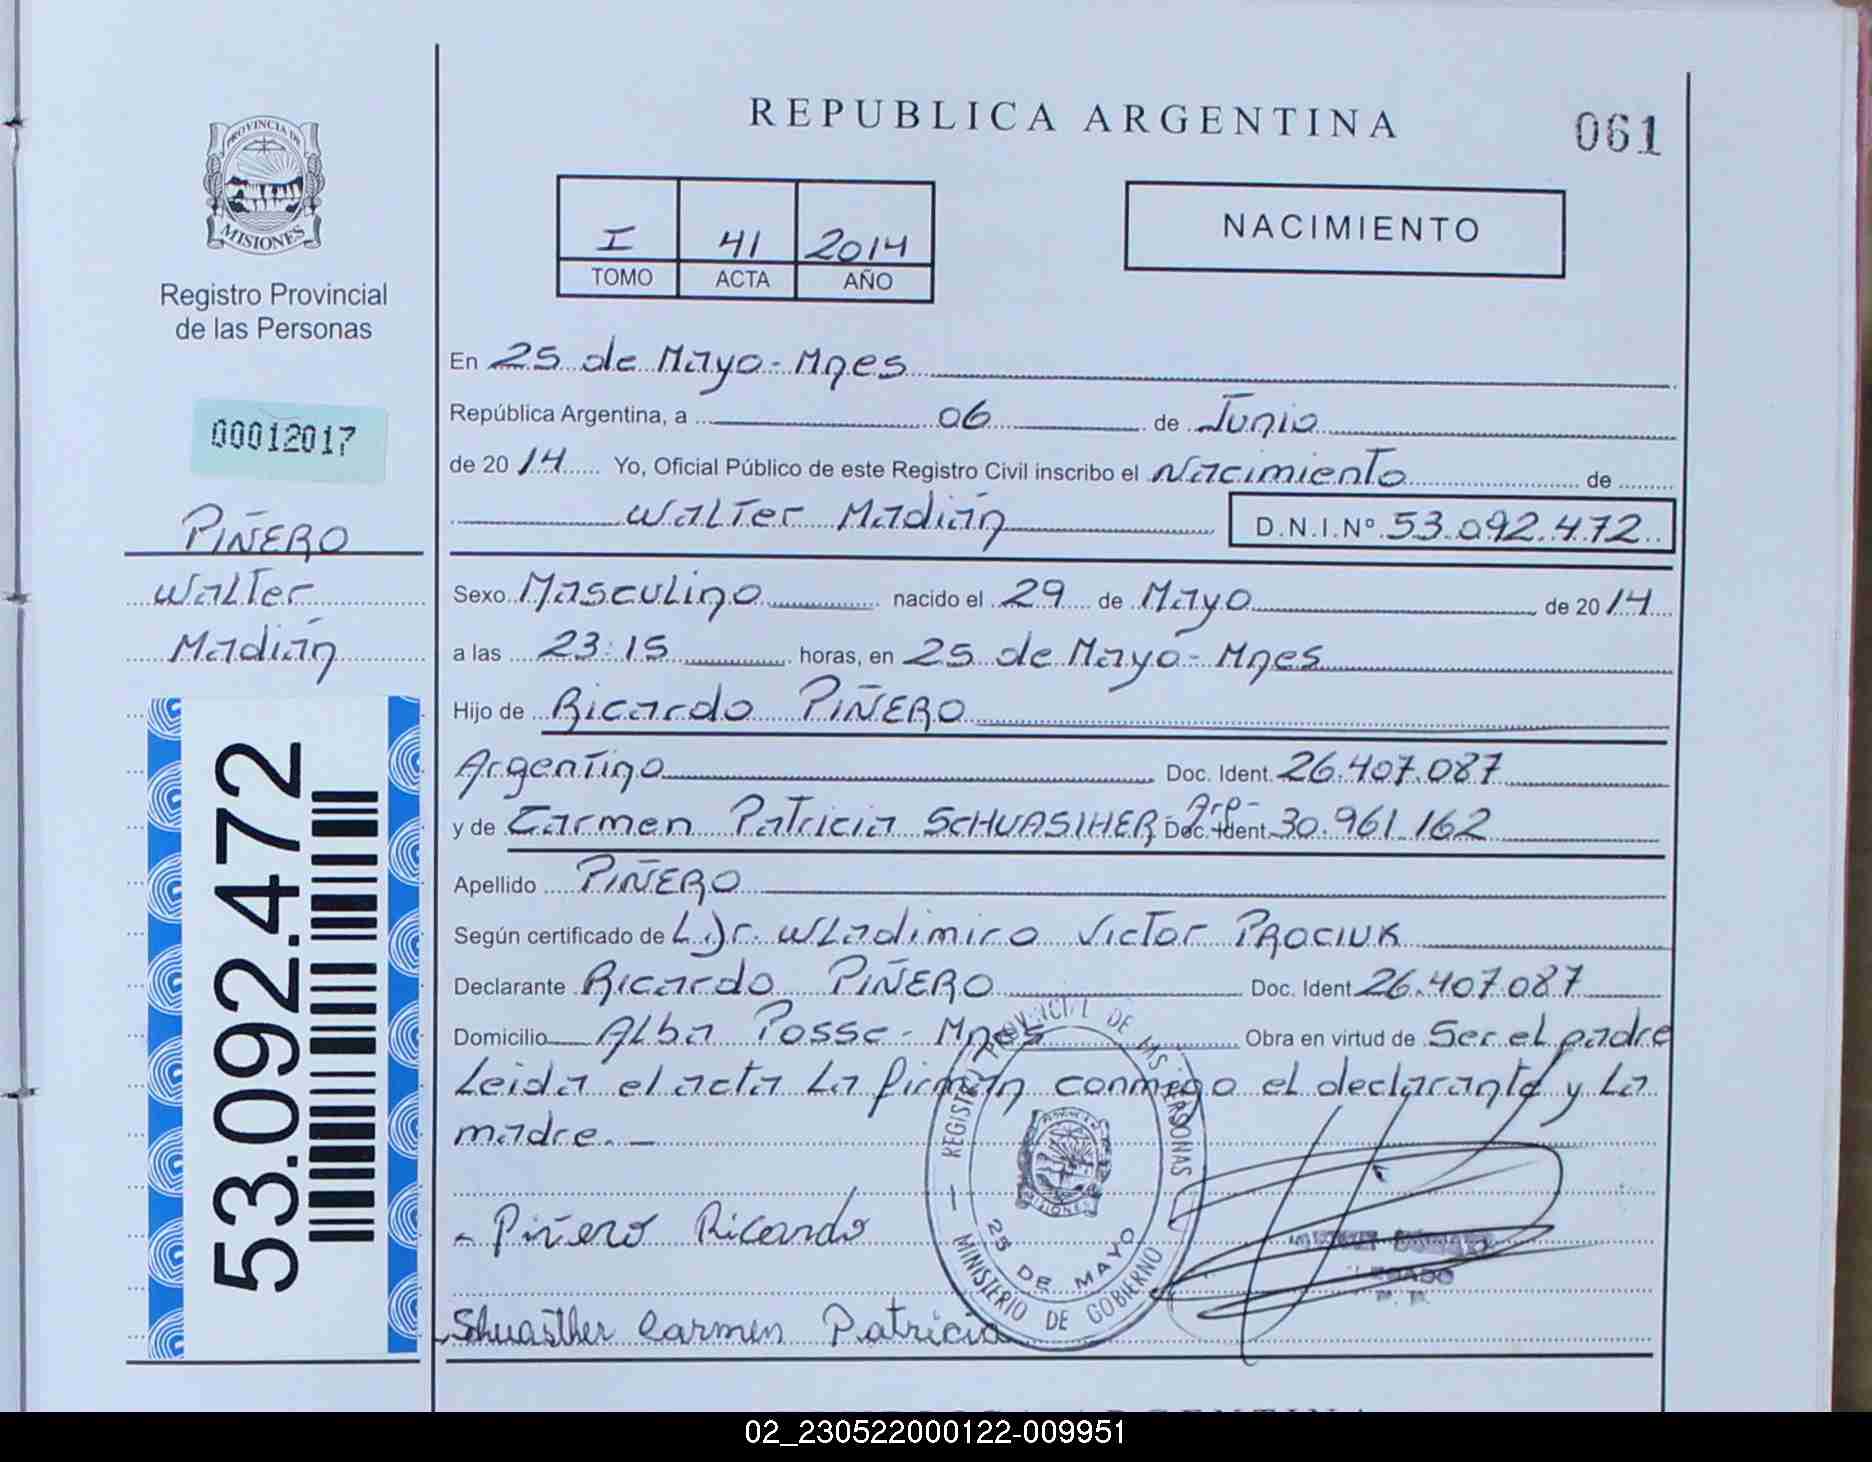 REPUBLICA ARGENTINA
061
PROVINCIA DE
MISIONES
Registro Provincial
de las Personas
00012017
PIÑERO
Walter
Madián
53.092.472
I 41 2014
TOMO ACTA AÑO
NACIMIENTO
En 25 de Mayo - Mnes
República Argentina, a 06 de Junio
de 2014 Yo, Oficial Público de este Registro Civil inscribo el Nacimiento de
Walter Madián D.N.I.Nº 53.092.472
Sexo Masculino nacido el 29 de Mayo de 2014
a las 23:15 horas, en 25 de Mayo - Mnes
Hijo de Ricardo PIÑERO
Argentino Doc. Ident. 26.407.087
Arg-
y de Carmen Patricia SCHUASIHER Doc. Ident. 30.961.162
Apellido PIÑERO
Según certificado de L. Dr. Wladimiro Victor PROCIUK
Declarante Ricardo PIÑERO Doc. Ident 26.407.087
Domicilio Alba Posse - Mnes Obra en virtud de Ser el padre
Leida el acta La firman conmigo el declarante y La
madre. —
Piñero Ricardo
Shuasther Carmen Patricia
REGISTRO PROVINCIAL DE LAS PERSONAS
25 DE MAYO
MINISTERIO DE GOBIERNO
02_230522000122-009951